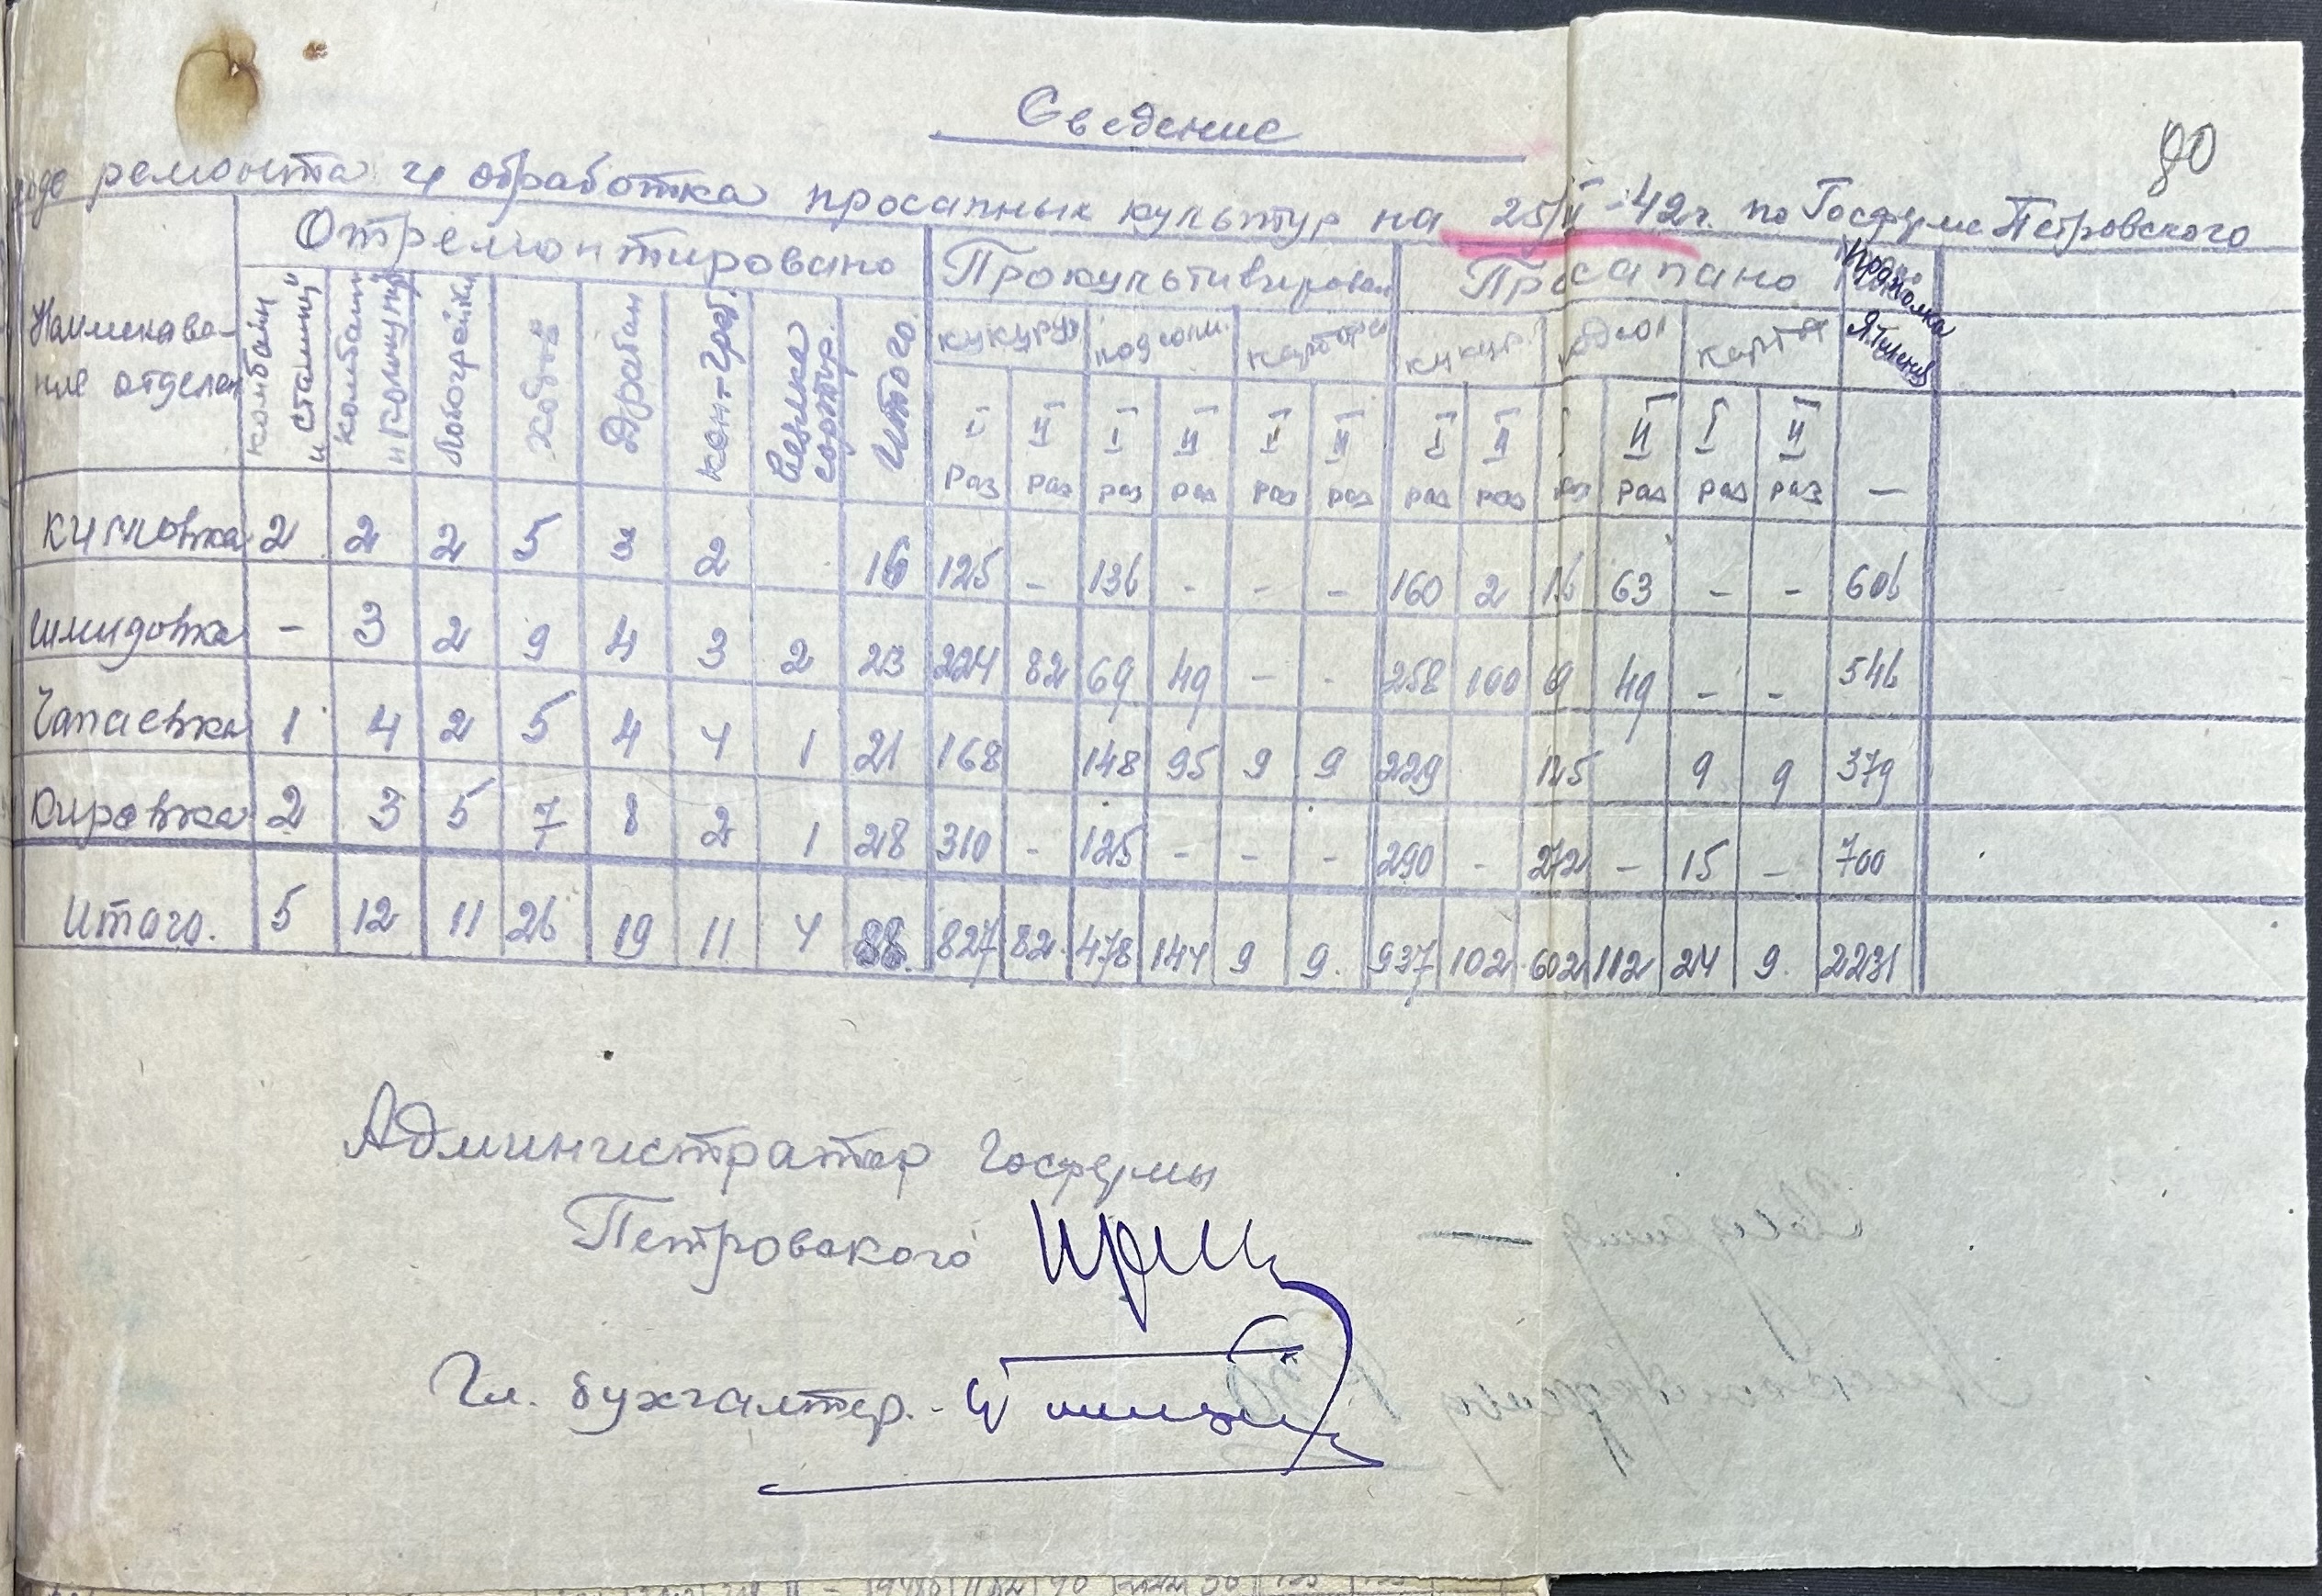 80
Сведение
ходе ремонта и обработка просапных культур на 25/VI-42г. по Госферме Петровского
Наименова-
ние отделен
Отремонтировано
Прокультивирован
Просапано
Прополка
комбайн "Сталинец"
комбайн "Коммунар"
лобогрейки
Драбан
кон. граб.
Веялка сортир.
Итого.
кукуруз
подсолн.
картоф
кукур.
карт
I раз II раз I раз II раз I раз II раз I раз II раз I раз II раз I раз II раз —
Кимовка 2 2 2 5 3 2 16 125 - 136 - - - 160 2 63 - - 606
Шмидовка - 3 2 9 4 3 2 23 224 82 69 49 - - 258 100 69 49 - - 546
Чапаевка 1 4 2 5 4 4 1 21 168 148 95 9 9 229 125 9 9 379
Кировка 2 3 5 7 8 2 1 28 310 - 125 - - - 290 - 272 - 15 - 700
Итого. 5 12 11 26 19 11 4 88. 827 82. 478 144 9 9. 937 102 602 112 24 9. 2231
Администратор Госфермы
Петровского
Гл. бухгалтер. -